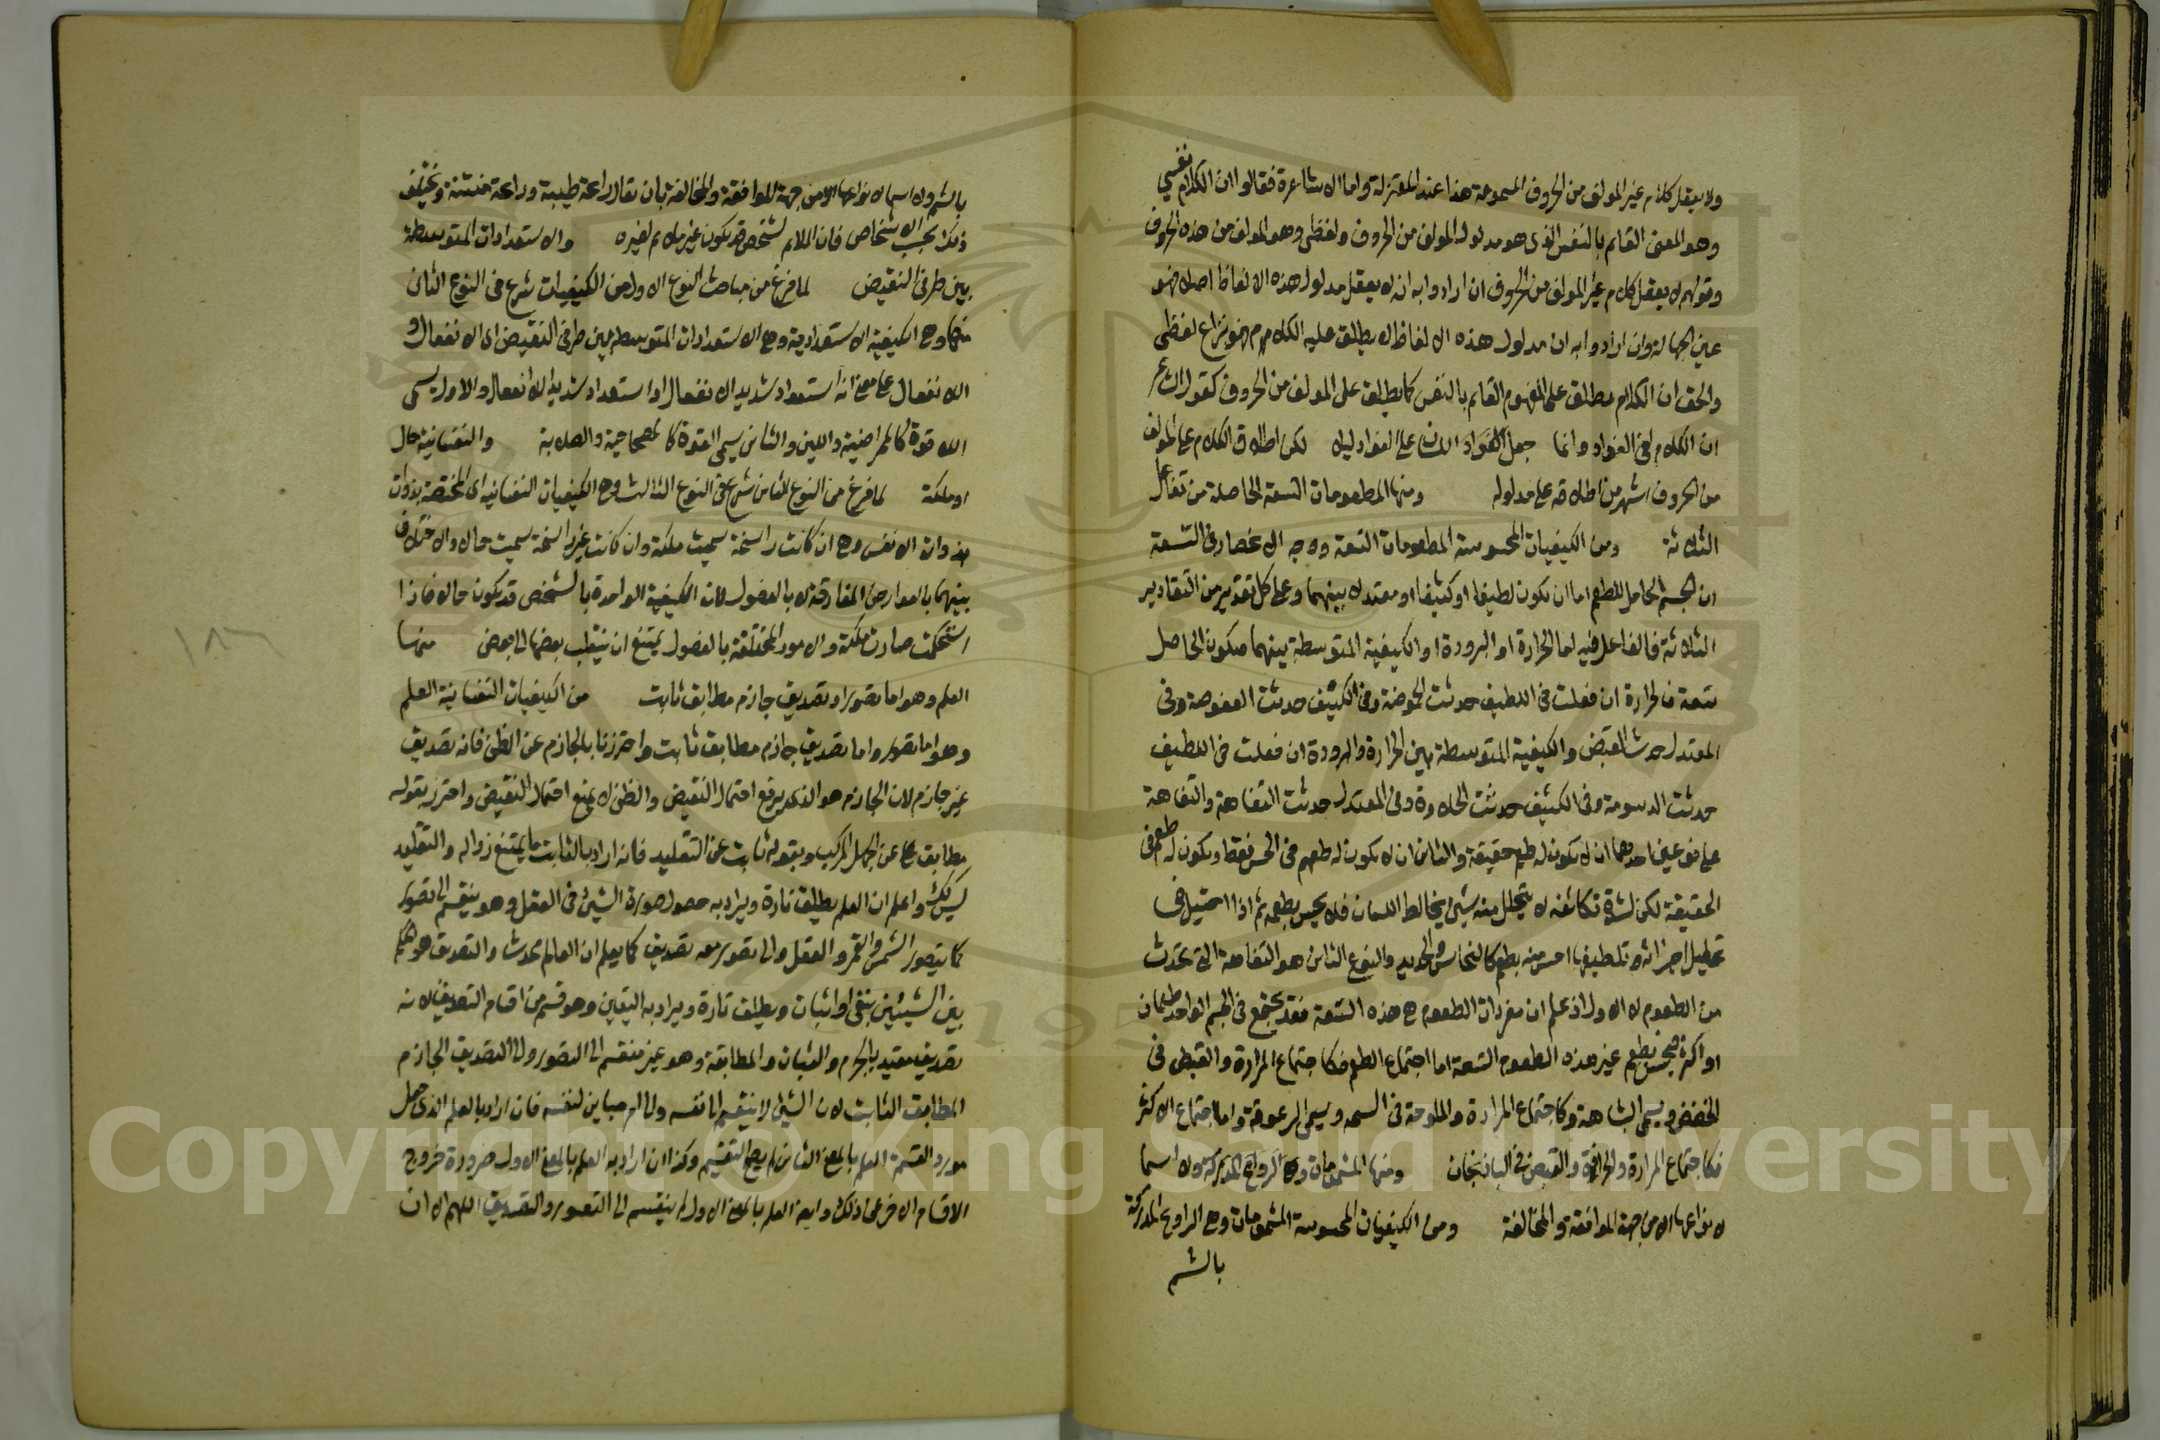 ولا يعقل كلام غير المولف من الحروف المسموعة هذا عند المعتزلة واما الاشاعرة فقالوا ان الكلام نفسي
وهو المعنى القائم بالنفس الذى هو مدلول المولف من الحروف ولفظى وهو المولف من هذه الحروف
وقولهم لا يعقل كلام غير المولف من الحروف ان ارادوا به انه لا يعقل مدلول هذه الالفاظ اصلا فهو
عين الجهالة وان ارادوا به ان مدلول هذه الالفاظ لا يطلق عليه الكلام فهو نزاع لفظى
والحق ان الكلام يطلق على المفهوم القائم بالنفس كما يطلق على المولف من الحروف كقول الشاعر
ان الكلام لفى الفواد وانما جعل اللسان على الفواد دليلا لكن اطلاق الكلام على المولف
من الحروف اشهر من اطلاقه على مدلوله ومنها المطعومات التسعة الحاصلة من تفاعل
الثلاثة ومن الكيفيات المحسوسة المطعومات التسعة ووجه الانحصار فى التسعة
ان الجسم الحامل للطعم اما ان يكون لطيفا او كثيفا او معتدلا بينهما وعلى كل تقدير من التقادير
الثلاثة فالفاعل فيه اما الحرارة او البرودة او الكيفية المتوسطة بينهما فيكون الحاصل
تسعة فالحرارة ان فعلت فى اللطيف حدثت الحموضة وفى الكثيف حدثت العفوصة وفى
المعتدل حدث القبض والكيفية المتوسطة بين الحرارة والبرودة ان فعلت فى اللطيف
حدثت الدسومة وفى الكثيف حدثت الحلاوة وفى المعتدل حدثت التفاهة والتفاهة
على نوعين احدهما ان لا يكون له طعم حقيقة والثانى ان لا يكون له طعم فى الحس فقط ويكون له طعم فى
الحقيقة لكن لشدة تكاثفه لا يتحلل منه شئ يخالط اللسان فلا يحس بطعمه ثم اذا احتيل فى
تحليل اجزائه وتلطيفها احس منه بطعم كالنحاس والحديد والنوع الثانى هو التفاهة التى تحدث
من الطعوم لا الاول اذ علم ان مفردات الطعوم هى هذه التسعة فقد يجتمع فى الجسم الواحد طعمان
او اكثر فيحس بطعم غير هذه الطعوم التسعة اما اجتماع الطعم فكاجتماع المرارة والقبض فى
الحضض ويسمى البشاعة وكاجتماع المرارة والملوحة فى السبخة ويسمى الزعوقة واما اجتماع الاكثر
فكاجتماع المرارة والحرافة والقبض فى الباذنجان ومنها المشمومات وهى الروائح المدركة ولا اسما
لانواعها الا من جهة الموافقة والمخالفة ومن الكيفيات المحسوسة المشمومات وهى الروائح المدركة
بالشم
بالشم ولا اسما لانواعها الا من جهة الموافقة والمخالفة بان يقال رائحة طيبة ورائحة منتنة ويختلف
ذلك بحسب الاشخاص فان الملايم لشخص قد يكون غير ملايم لغيره والاستعدادات المتوسطة
بين طرفى النقيض لما فرغ من مباحث النوع الاول من الكيفيات شرع فى النوع الثانى
منها وهى الكيفية الاستعدادية وهى الاستعدادات المتوسطة بين طرفى النقيض اى الانفعال و
اللانفعال على معنى انه استعداد شديد للانفعال او استعداد شديد للاانفعال والاول يسمى
اللاقوة كالممراضية واللين والثانى يسمى القوة كالمصحاحية والصلابة والنفسانية حال
او ملكة لما فرغ من النوع الثانى شرع فى النوع الثالث وهى الكيفيات النفسانية اى المختصة بذوات
بذوات الانفس وهى ان كانت راسخة سميت ملكة وان كانت غير راسخة سميت حالا والاختلاف
بينهما بالعوارض المفارقة لا بالفصول لان الكيفية الواحدة بالشخص قد يكون حالا فاذا
استحكمت صارت ملكة والامور المختلفة بالفصول يمتنع ان ينقلب بعضها الى بعض منها
العلم وهو اما تصور او تصديق جازم مطابق ثابت من الكيفيات النفسانية العلم
وهو اما تصور واما تصديق جازم مطابق ثابت واحترزنا بالجازم عن الظن فانه تصديق
غير جازم لان الجازم هو الذى يرفع احتمال النقيض والظن لا يمنع احتمال النقيض واحترز بقوله
مطابق عن الجهل المركب وبقوله ثابت عن التقليد فانه اراد بالثابت ما يمتنع زواله والتقليد
ليس كذلك واعلم ان العلم يطلق تارة ويراد به حصول صورة الشئ فى العقل وهو ينقسم الى تصور
كما يتصور الشمس والقمر والعقل والى تصور معه تصديق كما يعلم ان العالم محدث والتصديق هو الحكم
بين الشيئين بنفى او اثبات ويطلق تارة ويراد به اليقين وهو قسم من اقسام التصديق لانه
تصديق مقيد بالجزم والثبات والمطابقة وهو غير منقسم الى التصور والى التصديق الجازم
المطابق الثابت لان الشئ لا ينقسم الى نفسه والى امر مباين لنفسه فان اراد بالعلم الذى جعل
مورد القسمة العلم بالمعنى الثانى لم يصح التقسيم وكذا ان اراد به العلم بالمعنى الاول ضرورة خروج
الاقسام الاخر عن ذلك وايضا العلم بالمعنى الاول لم ينقسم الى التصور والتصديق اللهم الا ان
١٨٦
Copyright © King Saud University
1957